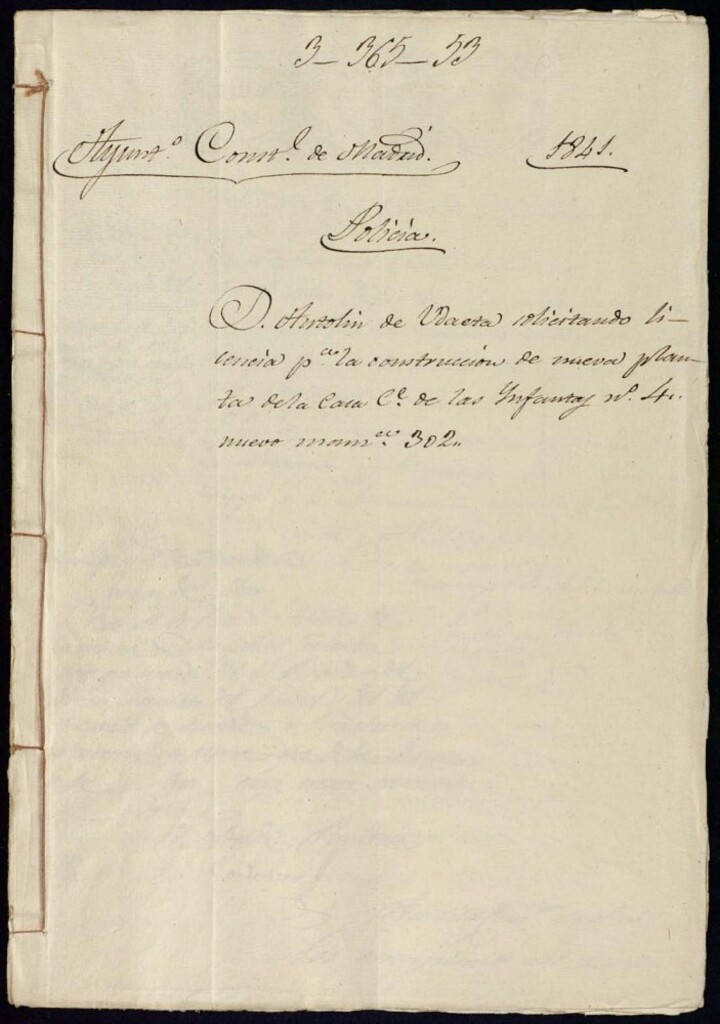 3-365-53
Ayunt.º Const.l de Madrid. 1841.
Policia.
D. Antolin de Udaeta solicitando li-
cencia p.ra la construccion de nueva plan-
ta de la Casa C.e de las Infantas n.º 4.
nuevo manz.na 302.